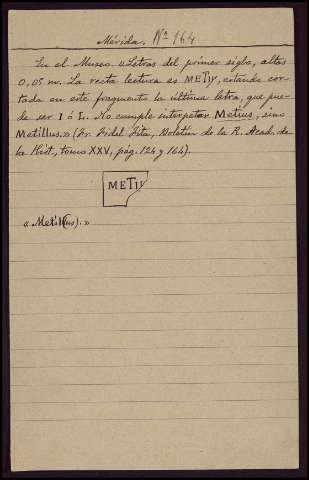 Mérida. Nº 164
En el Museo. «Letras del primer siglo, altas
0,05 m. La recta lectura es METIY, estando cor-
tada en este fragmento la última letra, que pue-
de ser I ó L. No cumple interpetar Metius, sino
Metillus.» (Fr. Fidel Fita, Boletín de la R. Acad. de
la Hist., tomo XXV, pág. 124 y 164).
METI
« Metil(lus). »